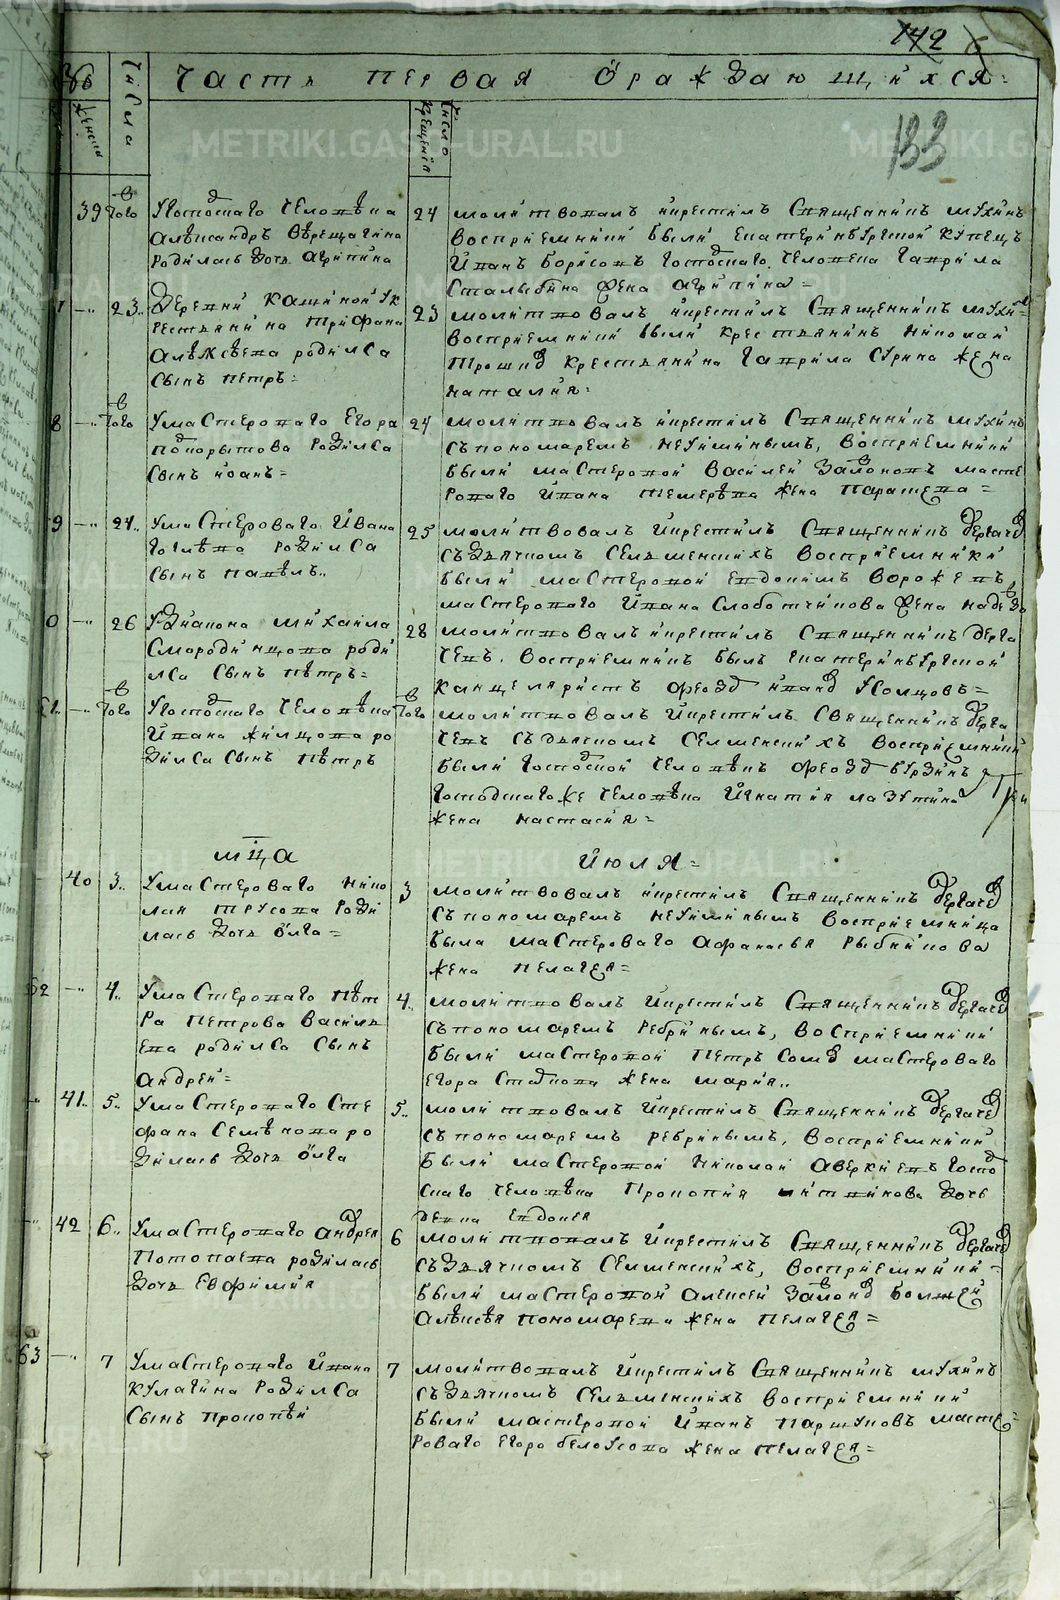 142
133
Часть первая ораждающихся
числа
женска
число крещенiя
39 того Угосподскаго человѣка
Александръ Верещагина
родилась дочь агрипина
24 молитвовалъ икрестилъ Священникъ мухинъ
Восприемники были екатеринбургской купецъ
Иванъ борисовъ господскаго человека гаврила
Сталыбина жена агрипина
23 Деревни кашиной ук
рестьянина трифана
алексѣева родился
сынъ петръ
23 молитвовалъ икрестилъ Священникъ мухинъ
восприемники были крестьянинъ николай
Трошинъ крестьянина гаврила сурина жена
наталия
8 того Умастероваго Егора
родился
сынъ иоанъ
24 молитвовалъ икрестилъ Священникъ мухинъ
съпономаремъ неуйминымъ, восприемники
были мастеровой Василей масте
роваго ивана жена Парасκева
9 24 Умастероваго Ивана
родился
сынъ павѣлъ
25 молитвовалъ икрестилъ Священникъ дергачевъ
съдьячкомъ Селменскихъ восприемники
были мастеровой евдокимъ ворожевъ
мастероваго Ивана Слоботчикова жена надежда
0 26 Удиакона михаила
Смородинцова роди
лса сынъ пѣтръ
28 молитвовалъ икрестилъ Священникъ дерга
чевъ восприемникъ былъ екатеринбургской
канцеляристъ иванъ Усолцовъ
61 того Угосподскаго человѣка
Ивана жилцова ро
дилса сынъ пѣтръ
того молитвовалъ икрестилъ священникъ дерга
чевъ съдьячкомъ Селменскихъ восприемники
были господской человѣкъ бурзинъ
господскагоже человѣка Игнатия лазутина
жена настасия
мца июля
40 3 Умастероваго нико
лая трусова роди
лась дочь олга
3 молитвовалъ икрестилъ Священникъ дергачевъ
съпономаремъ неуйминымъ восприемница
была мастероваго афанасья рыбникова
жена пелагея
62 4 Умастероваго пѣт
ра петрова василь
ева родился сынъ
андрей
4 молитвовалъ икрестилъ Священникъ дергачевъ
съпономаремъ ребринымъ, восприемники
были мастеровой петръ мастероваго
егора жена мария
41 5 Умастероваго сте
фана семѣнова ро
дилась дочь олга
5 молитвовалъ икрестилъ Священникъ дергачевъ
съпономаремъ ребринымъ, восприемники
были мастеровой николай аверкиевъ госпо
скаго человѣка Прокопия дочь
девка евдокея
42 6 Умастероваго андрея
потопаева родилась
дочь Евфимия
6 молитвовалъ икрестилъ Священникъ дергачевъ
съдьячкомъ Селменскихъ, восприемники
были мастеровой алексей болшей
алѣксѣя пономарева жена пелагея
63 7 Умастероваго ивана
кулагина родился
сынъ прокопѣй
7 молитвовалъ икрестилъ Священникъ мухинъ
съдьячкомъ Селменскихъ восприемники
были мастеровой Иванъ Паршуковъ масте
роваго егора белоусова жена пелагея
METRIKI.GASO-URAL.RU